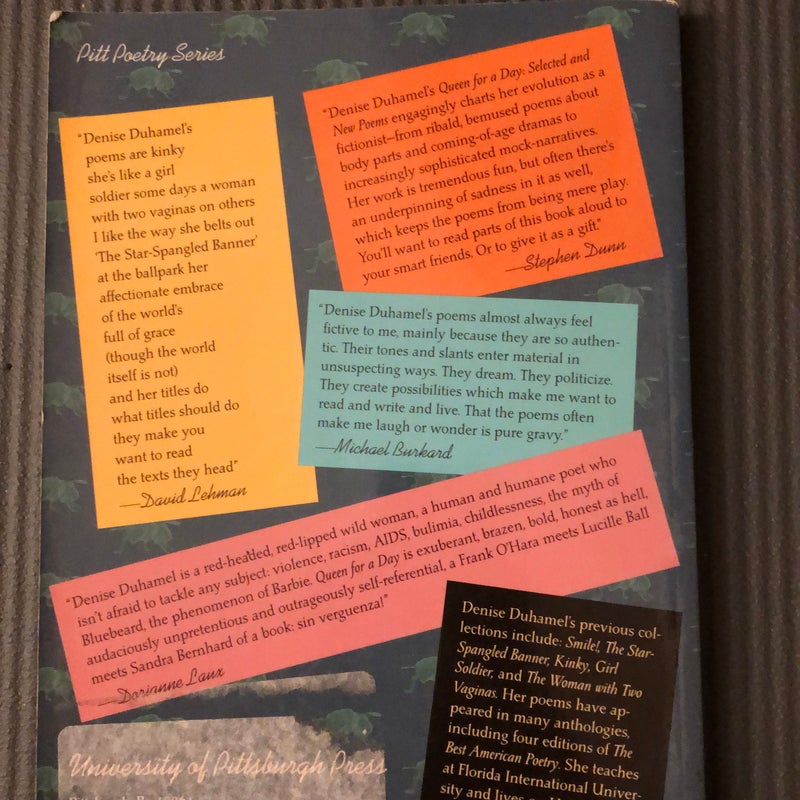 Pitt Poetry Series
"Denise Duhamel's
poems are kinky
she's like a girl
soldier some days a woman
with two vaginas on others
I like the way she belts out
'The Star-Spangled Banner'
at the ballpark her
affectionate embrace
of the world's
full of grace
(though the world
itself is not)
and her titles do
what titles should do
they make you
want to read
the texts they head"
—David Lehman
"Denise Duhamel's Queen for a Day: Selected and
New Poems engagingly charts her evolution as a
fictionist—from ribald, bemused poems about
body parts and coming-of-age dramas to
increasingly sophisticated mock-narratives.
Her work is tremendous fun, but often there's
an underpinning of sadness in it as well,
which keeps the poems from being mere play.
You'll want to read parts of this book aloud to
your smart friends. Or to give it as a gift."
—Stephen Dunn
"Denise Duhamel's poems almost always feel
fictive to me, mainly because they are so authen-
tic. Their tones and slants enter material in
unsuspecting ways. They dream. They politicize.
They create possibilities which make me want to
read and write and live. That the poems often
make me laugh or wonder is pure gravy."
—Michael Burkard
"Denise Duhamel is a red-headed, red-lipped wild woman, a human and humane poet who
isn't afraid to tackle any subject: violence, racism, AIDS, bulimia, childlessness, the myth of
Bluebeard, the phenomenon of Barbie. Queen for a Day is exuberant, brazen, bold, honest as hell,
audaciously unpretentious and outrageously self-referential, a Frank O'Hara meets Lucille Ball
meets Sandra Bernhard of a book: sin verguenza!"
—Dorianne Laux
Denise Duhamel's previous col-
lections include: Smile!, The Star-
Spangled Banner, Kinky, Girl
Soldier, and The Woman with Two
Vaginas. Her poems have ap-
peared in many anthologies,
including four editions of The
Best American Poetry. She teaches
at Florida International Univer-
sity and lives
University of Pittsburgh Press